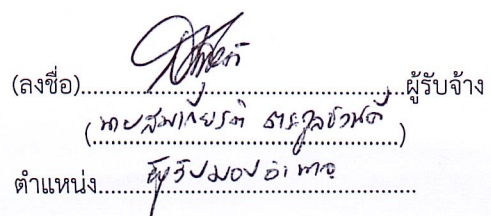 (ลงชื่อ)..................................................ผู้รับจ้าง
(นายสมเกียรติ ตระกูล)
ตำแหน่ง ผู้รับมอบอำนาจ